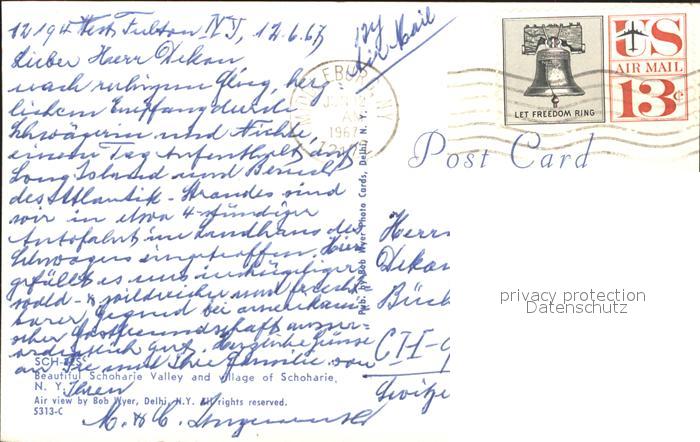 12194 West Fulton NY, 12.6.67
by Air Mail
Lieber Herr Dekan
nach ruhigem Flug, herz-
lichem Empfang durch
Schwägerin und Nichte,
einem Tag Aufenthalt auf
Long Island und Besuch
des Atlantik-Strandes sind
wir in etwa 4-stündiger
Autofahrt im Landhaus des
Schwagers eingetroffen. Hier
gefällt es uns in hügeliger
wald- & wildreicher und
Gegend bei amerikani-
scher Gastfreundschaft ausser-
ordentlich gut. Herzliche Grüsse
an Sie und Ihre Familie von
Ihren
M. & C.
SCH
Beautiful Schoharie Valley and village of Schoharie,
N. Y.
Air view by Bob Wyer, Delhi, N.Y. All rights reserved.
5313-C
Pub. by Bob Wyer Photo Cards, Delhi, N. Y.
MIDDLEBURGH NY
JUN 12
AM
1967
LET FREEDOM RING
US
AIR MAIL
13c
Post Card
Herrn
Dekan
Büch
CH-
Switze
privacy protection
Datenschutz